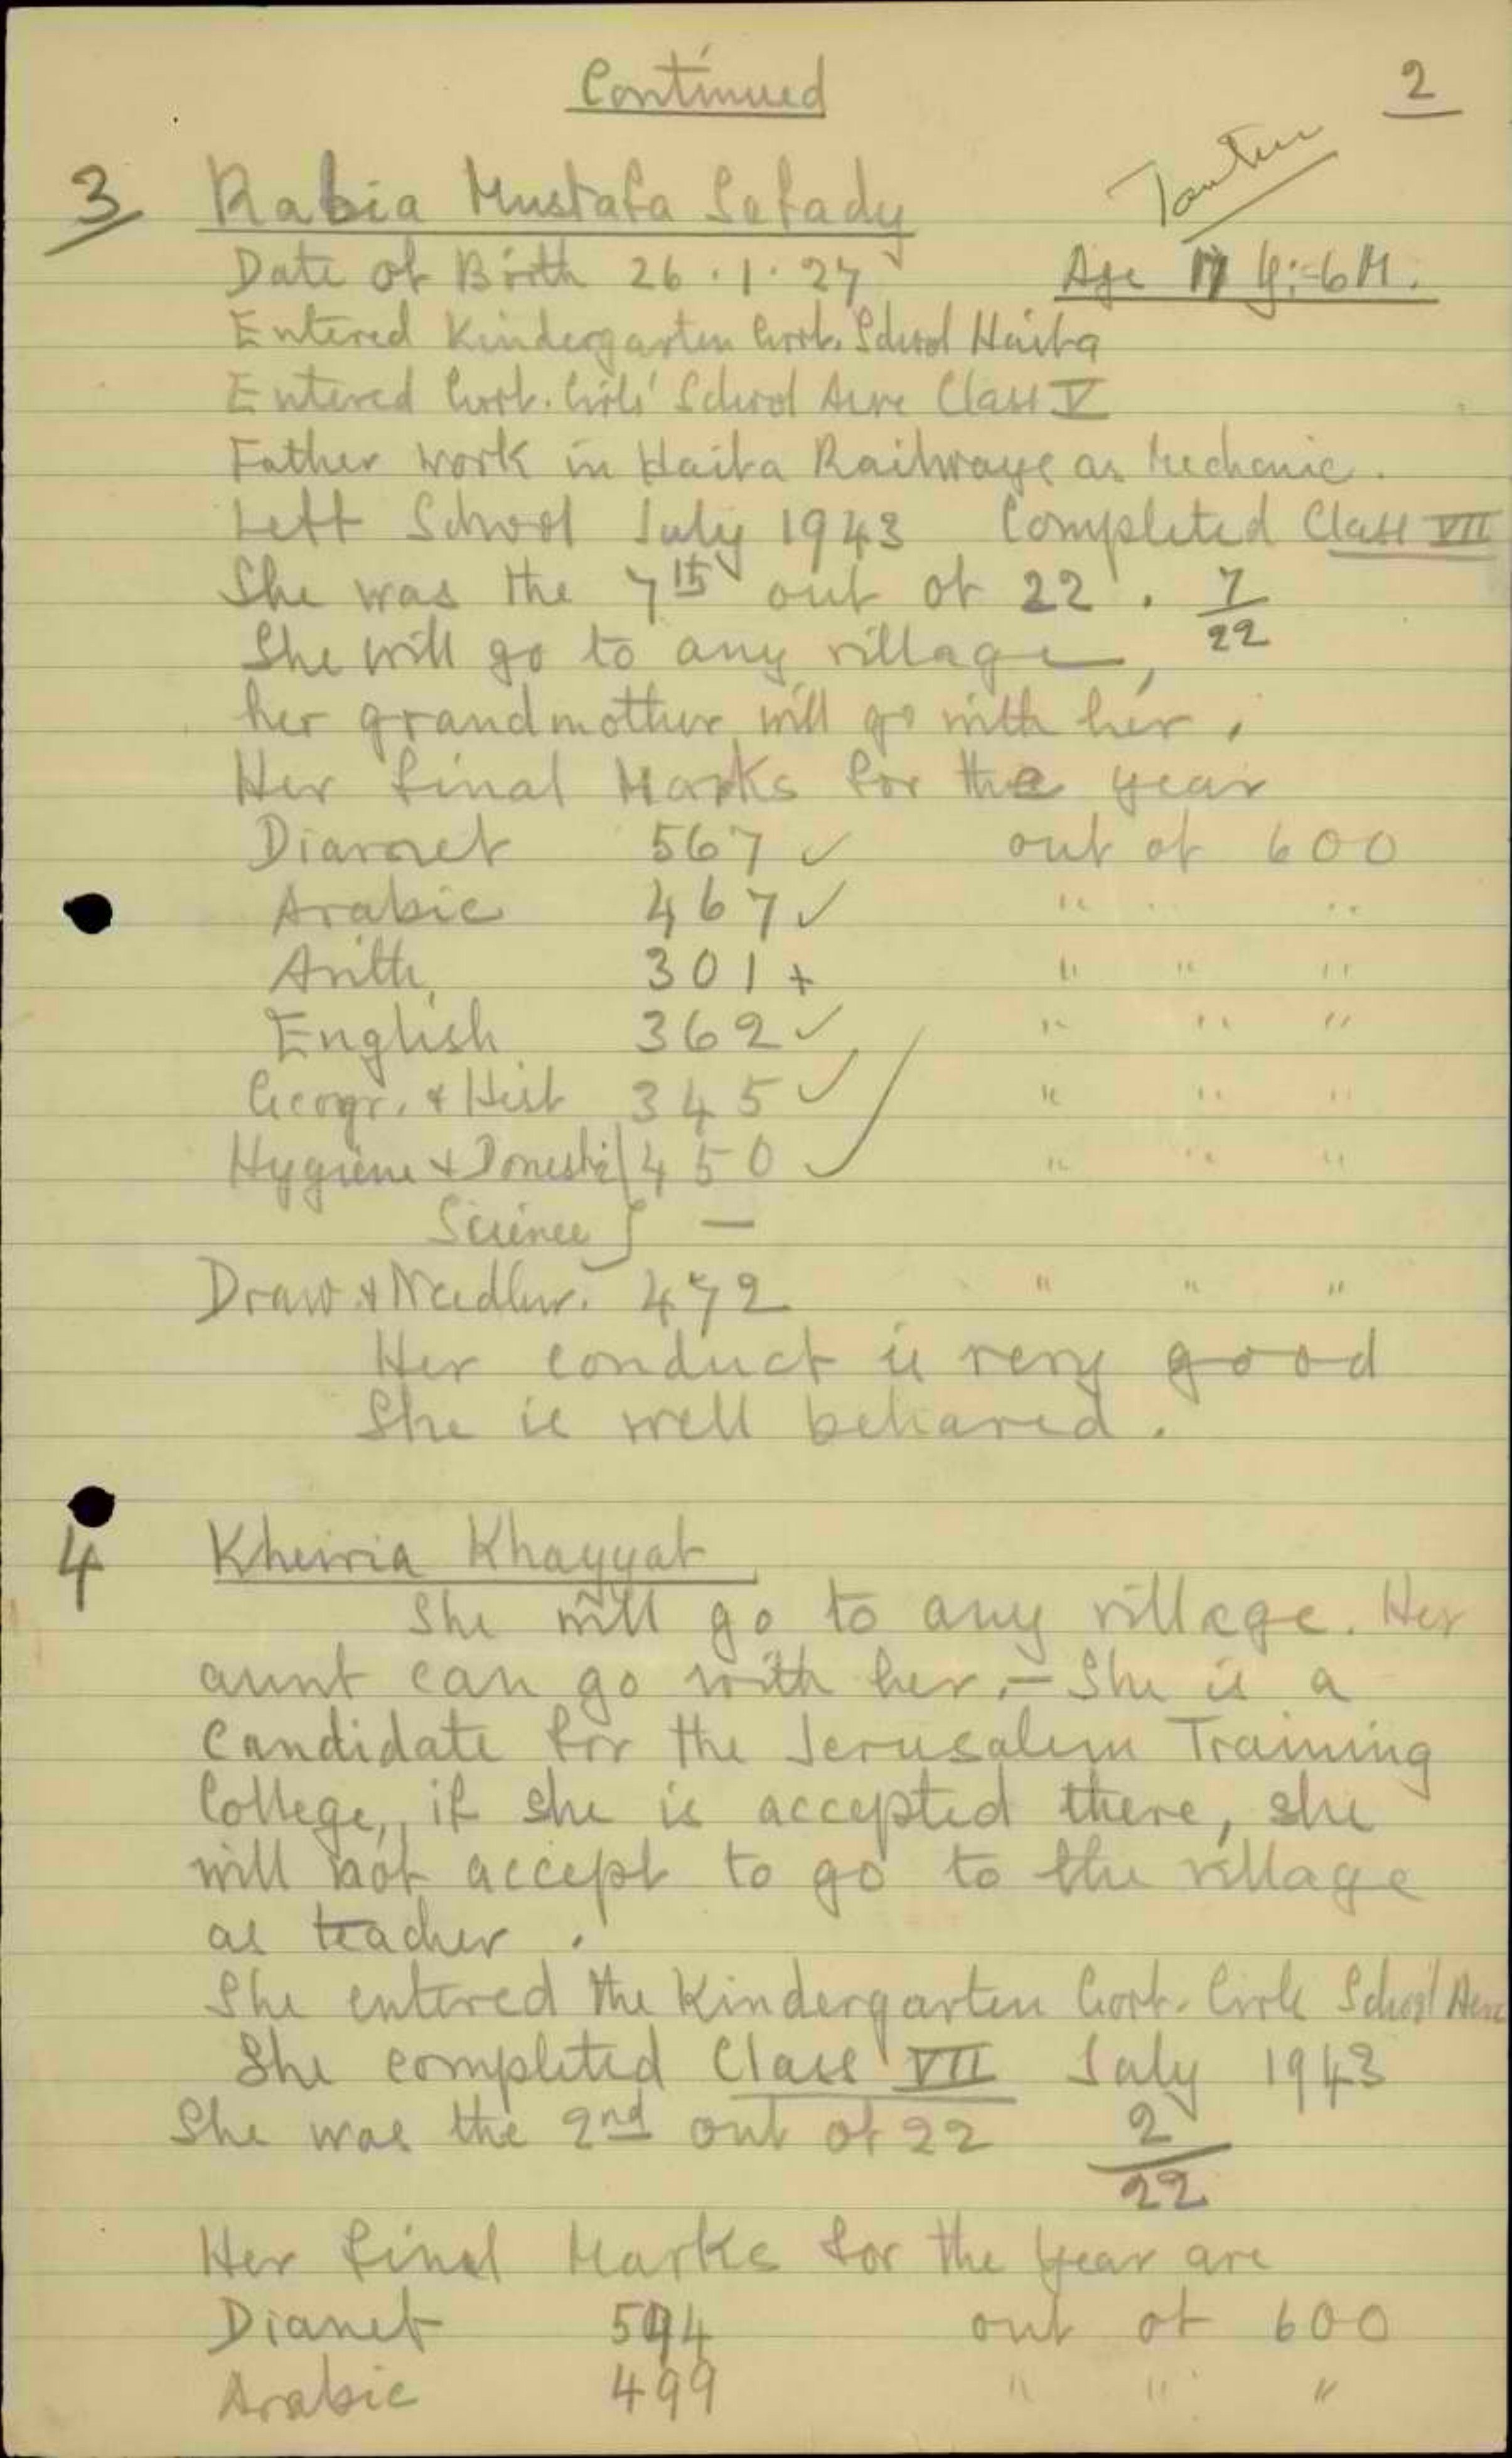 Continued
2
Tantura
3 Rabia Mustafa Safady
Date of Birth 26.1.27 Age 17 y:-6M.
Entered Kindergarten Govt. School Haifa
Entered Govt. Girls' School Acre Class V
Father work in Haifa Railways as Mechanic.
Left School July 1943 Completed Class VII
She was the 7th out of 22. 7/22
She will go to any village,
her grandmother will go with her.
Her final Marks for the year
Dianet 567 ✓ out of 600
Arabic 467 ✓ " " "
Arith. 301 + " " "
English 362 ✓ " " "
Geogr. & Hist 345 ✓ " " "
Hygiene & Domestic } 450 ✓ " " "
Science } —
Draw. & Needlw. 472 " " "
Her conduct is very good
She is well behaved.
4 Kheiria Khayyat
She will go to any village. Her
aunt can go with her.- She is a
Candidate for the Jerusalem Training
College, if she is accepted there, she
will not accept to go to the village
as teacher.
She entered the Kindergarten Govt. Girls School Acre
She completed Class VII July 1943
She was the 2nd out of 22 2/22
Her final Marks for the year are
Dianet 594 out of 600
Arabic 499 " " "